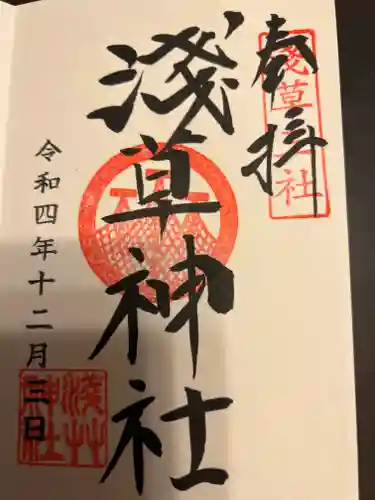 奉拝
浅草神社
淺草神社
令和四年十二月三日
淺草神社